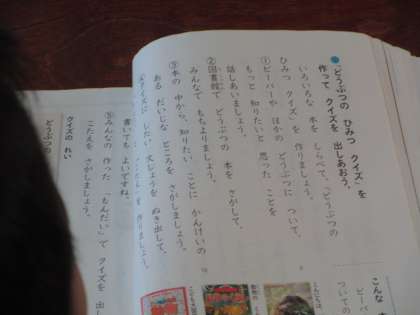 「どうぶつの ひみつ クイズ」を
作って クイズを 出しあおう。
いろいろな 本を しらべて、「どうぶつの
ひみつ クイズ」を 作りましょう。
①ビーバーや ほかの どうぶつに ついて、
もっと 知りたいと 思った ことを
話しあいましょう。
②図書館で どうぶつの 本を さがして、
みんなで もちよりましょう。
③本の 中から、知りたい ことに かんけいの
ある だいじな ところを さがしましょう。
④クイズに したい 文しょうを ぬき出して、
作りましょう。
書いても よいですね。
⑤みんなの 作った 「もんだい」で クイズを 出し
こたえを さがしましょう。
クイズの れい
どうぶつの
こんな
ビーバー
ついての
こんにちは、